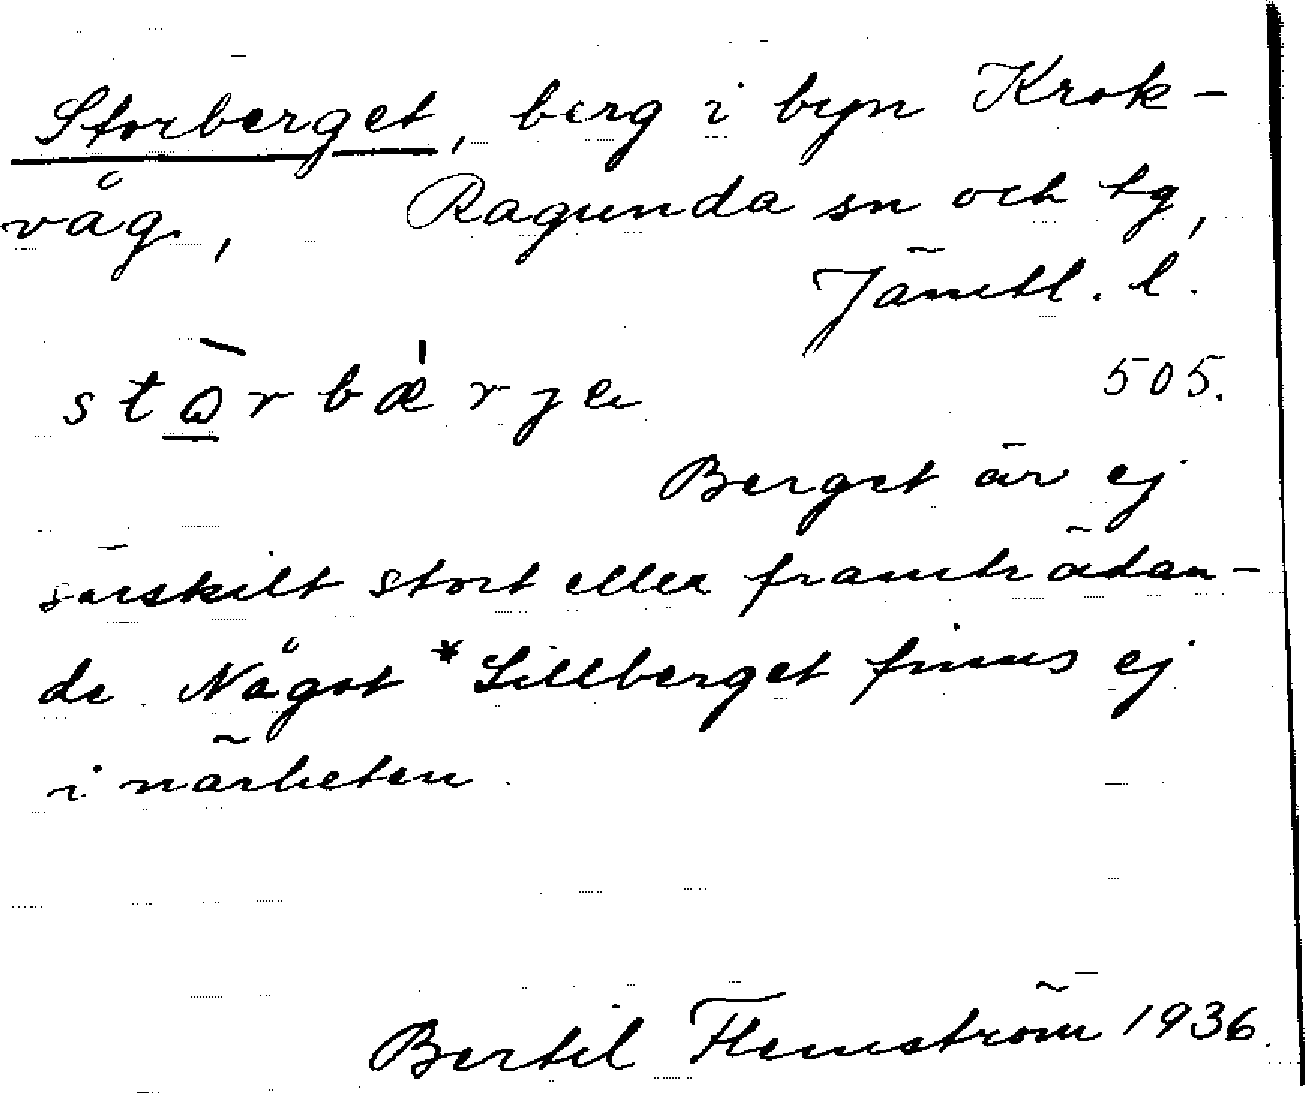 Storberget, berg i byn Krok-
våg, Ragunda sn och tg,
Jämtl. l.
505.
Berget är ej
särskilt stort eller framträdan-
de. Något *Lillberget finns ej
i närheten.
Bertil Flemström 1936.